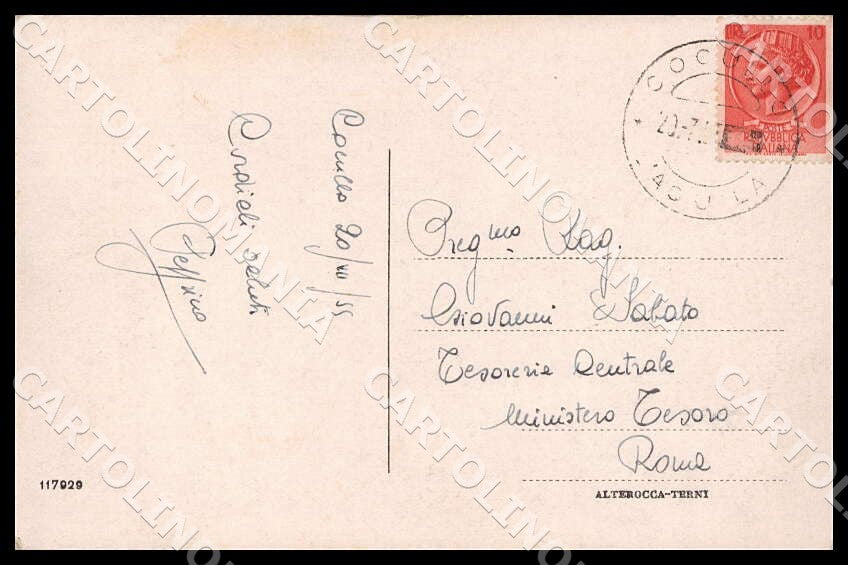 Cocullo 20/VII/55
Cordiali saluti
Peppino
LIRE 10
REPVBBLICA
ITALIANA
COCULLO
20.7.55
L'AQUILA
Preg.mo Rag.
Giovanni Sabato
Tesoreria Centrale
Ministero Tesoro
Roma
117929
ALTEROCCA-TERNI
CARTOLINOMANIA